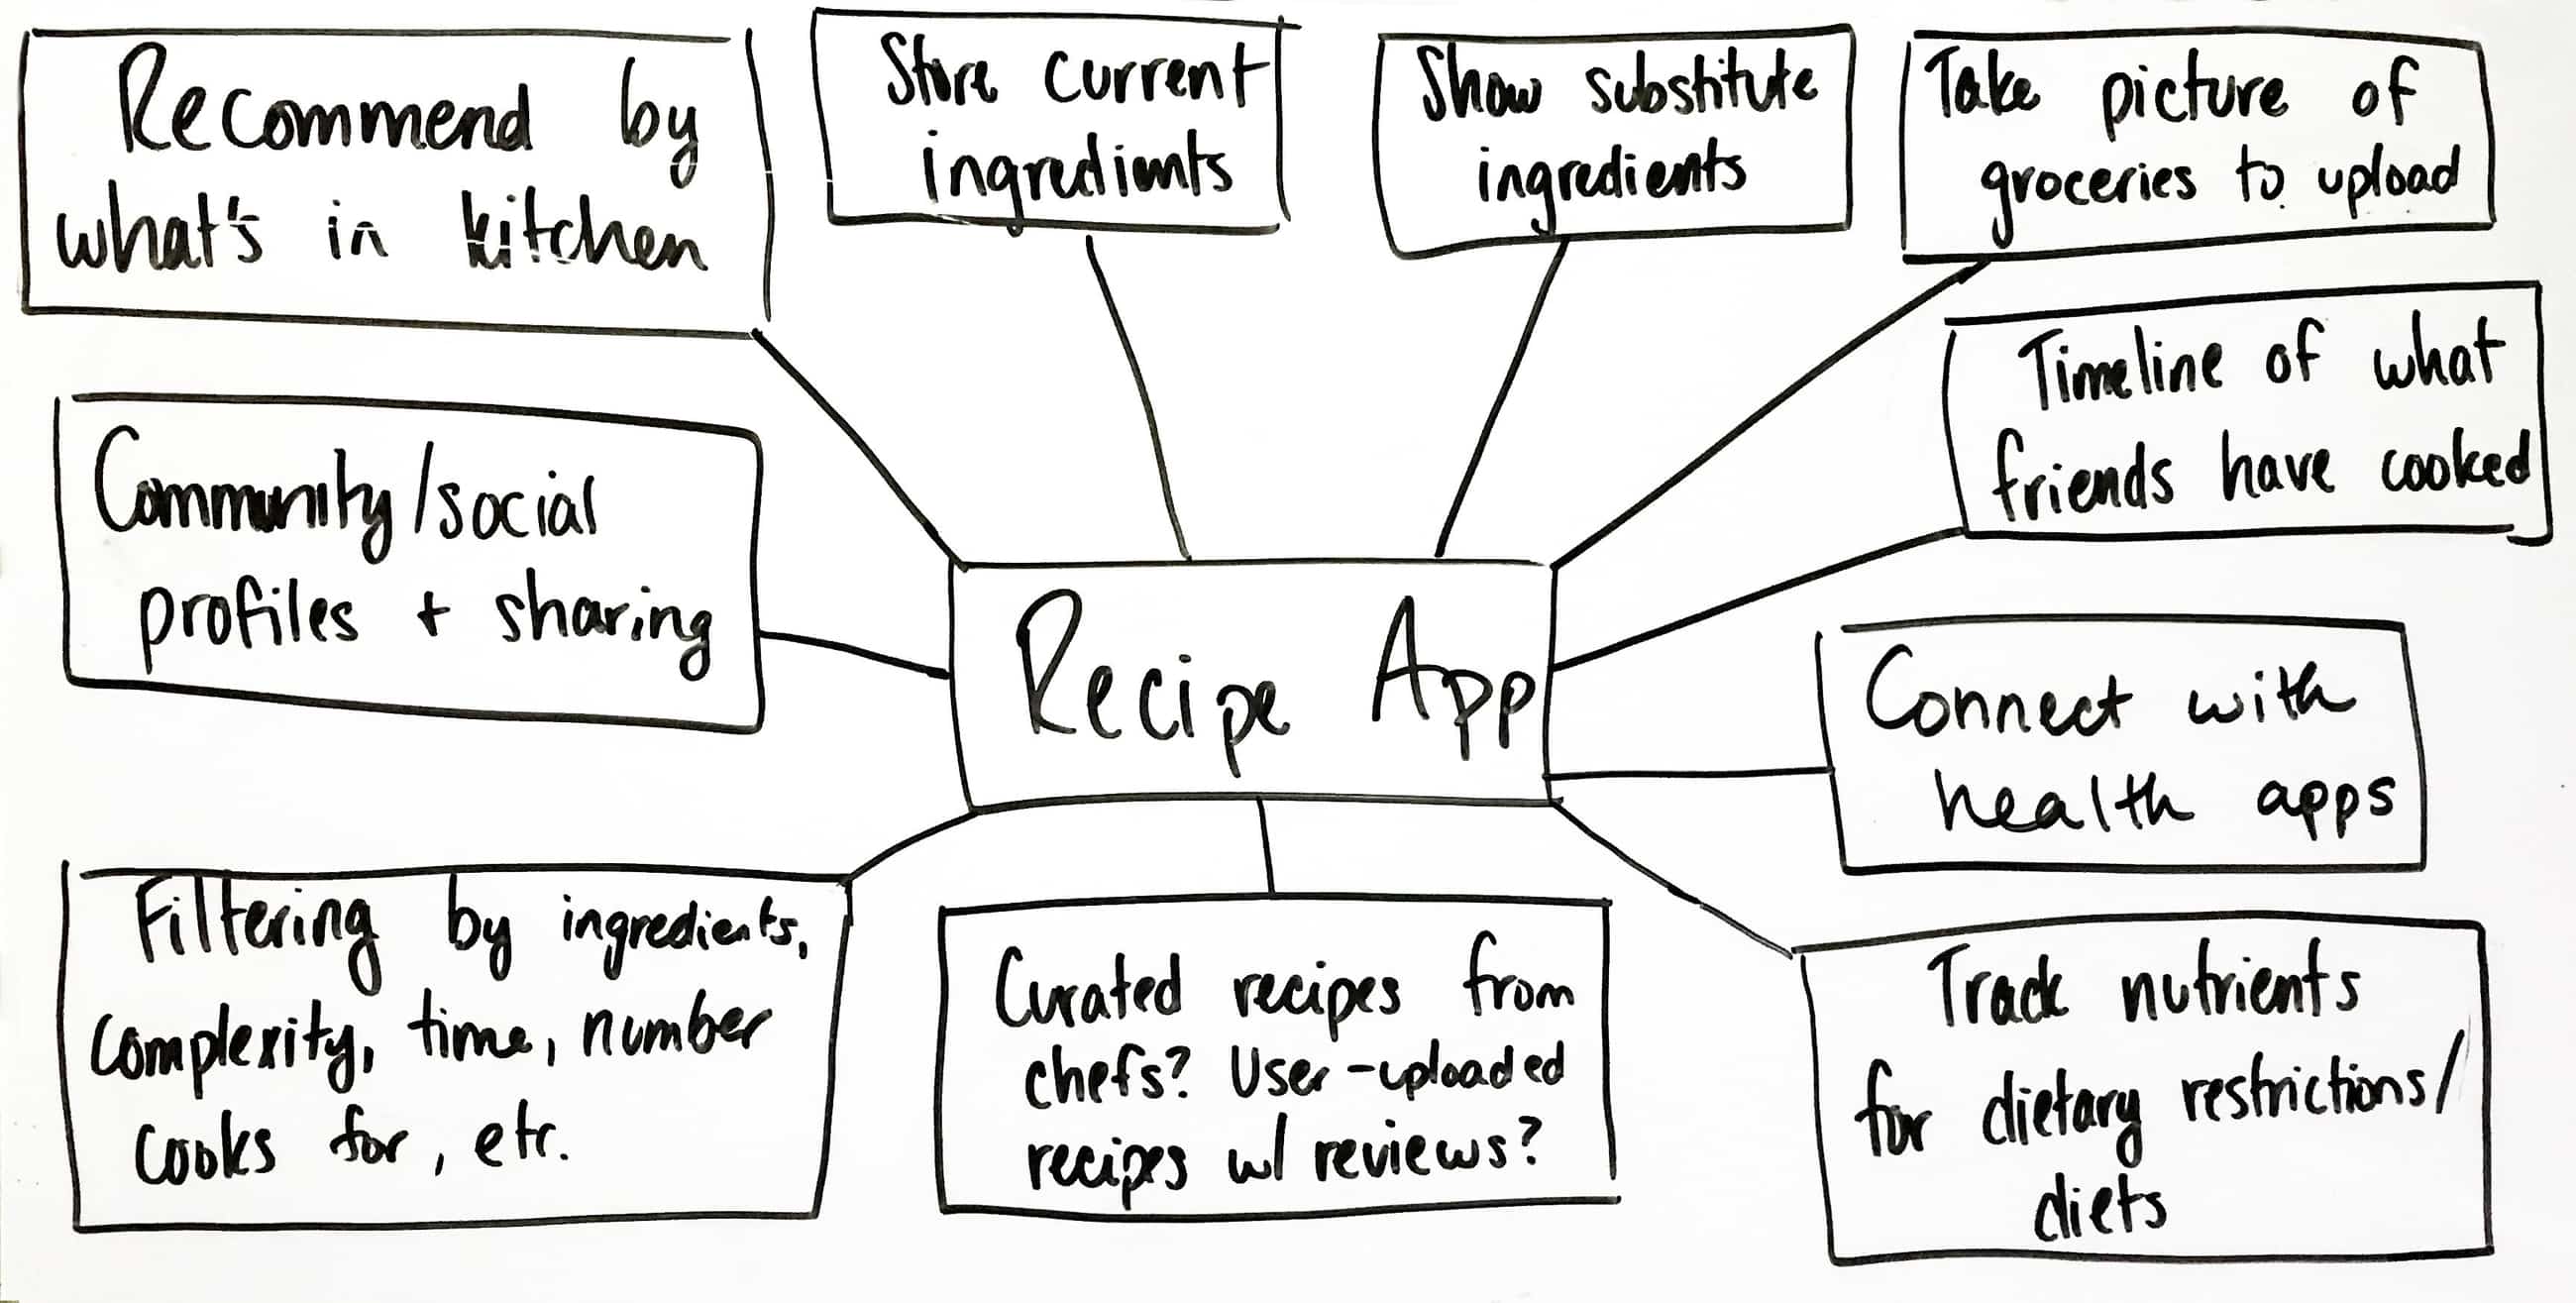 Recommend by
what's in kitchen
Store current
ingredients
Show substitute
ingredients
Take picture of
groceries to upload
Timeline of what
friends have cooked
Community/social
profiles + sharing
Recipe App
Connect with
health apps
Filtering by ingredients,
complexity, time, number
cooks for, etc.
Curated recipes from
chefs? User-uploaded
recipes w/ reviews?
Track nutrients
for dietary restrictions/
diets